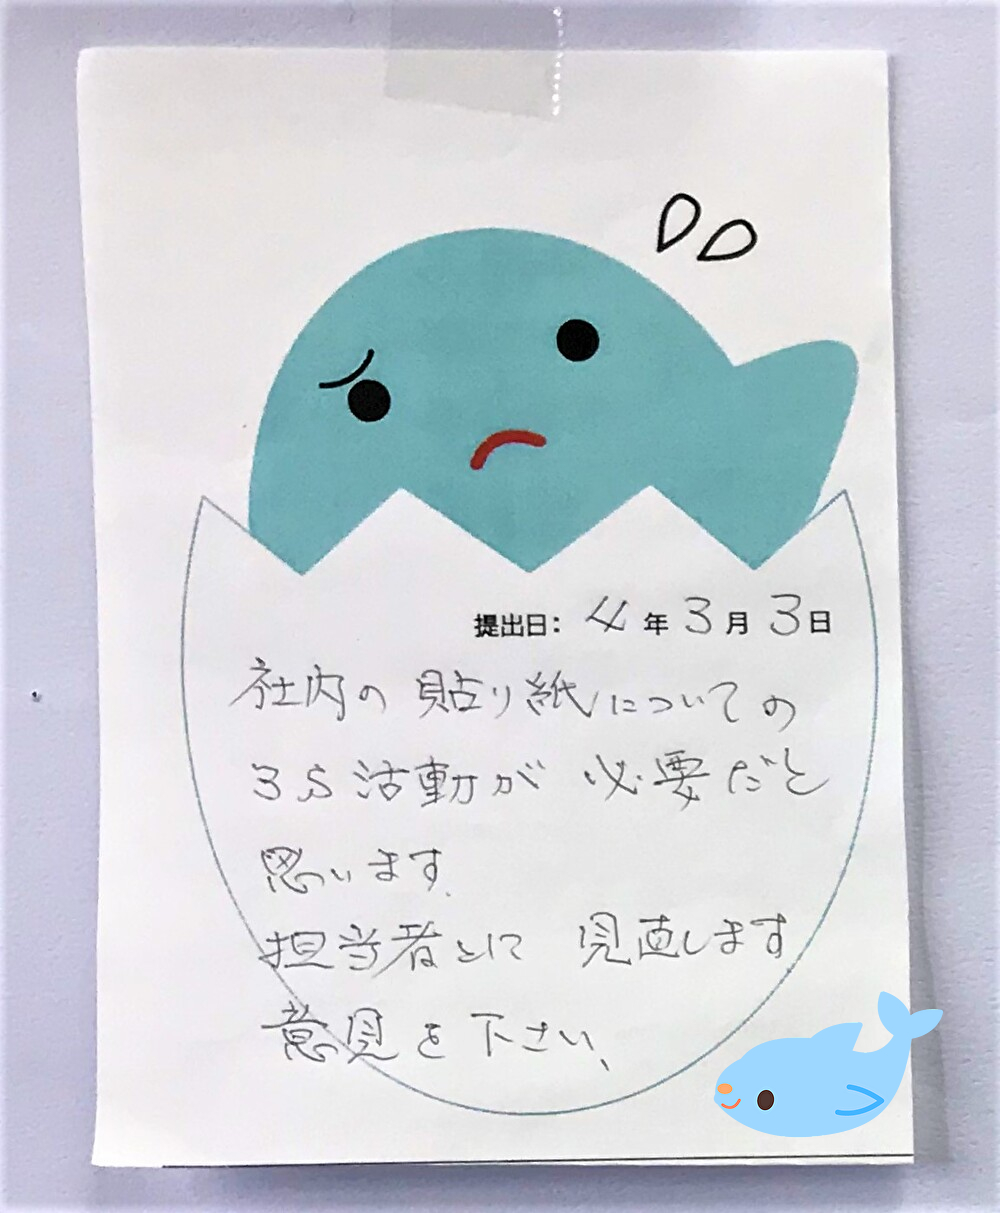 提出日: 4年3月3日
社内の貼り紙についての
3S活動が必要だと
思います.
担当者とにて見直します
意見を下さい、